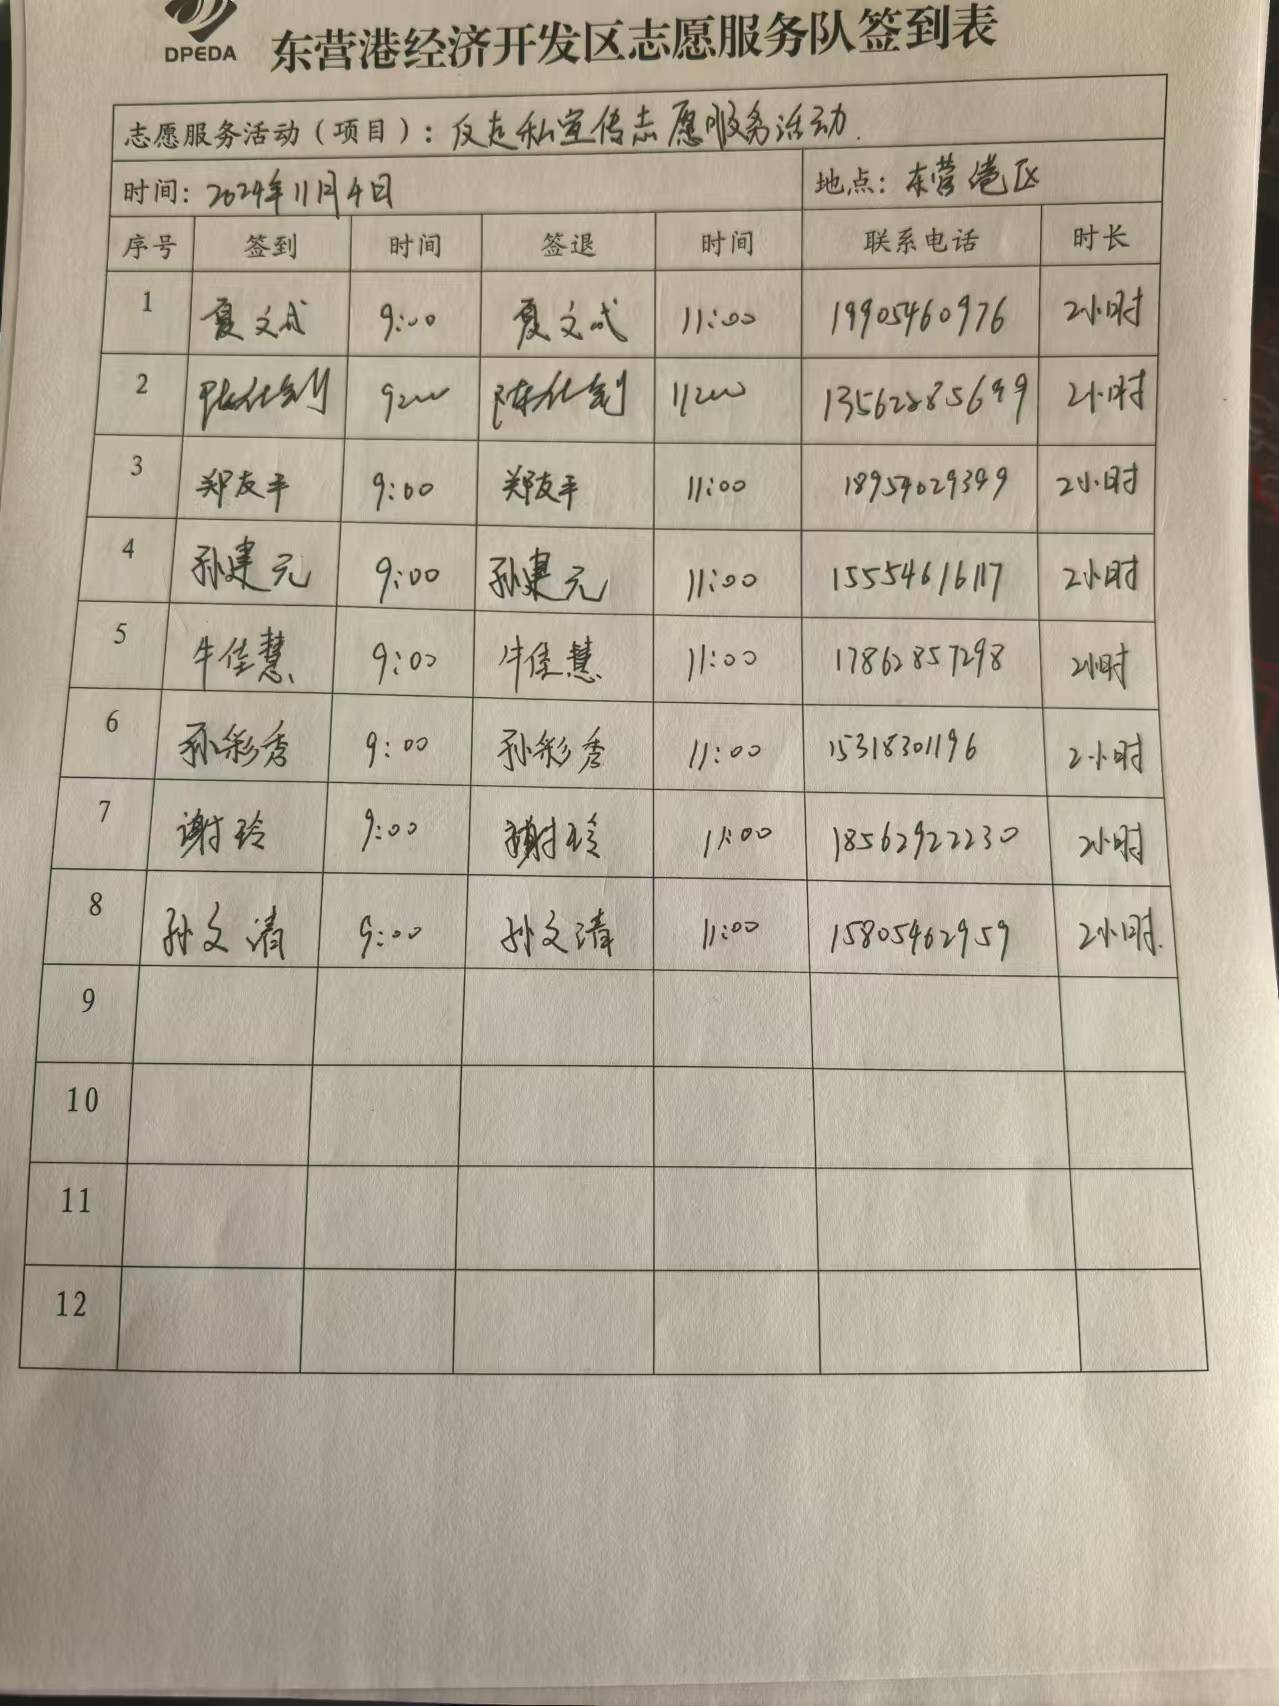 DPEDA
东营港经济开发区志愿服务队签到表
志愿服务活动（项目）：反走私宣传志愿服务活动.
时间：2024年11月4日 地点：东营港区
序号 签到 时间 签退 时间 联系电话 时长
1 夏文成 9:00 夏文成 11:00 19905460976 2小时
2 9:00 11:00 13562285699 2小时
3 郑友平 9:00 郑友平 11:00 18954029349 2小时
4 孙建元 9:00 孙建元 11:00 15554616117 2小时
5 牛佳慧 9:00 牛佳慧 11:00 17862857298 2小时
6 孙彩秀 9:00 孙彩秀 11:00 15318301196 2小时
7 谢玲 9:00 谢玲 11:00 18562922230 2小时
8 孙文清 9:00 孙文清 11:00 15805462959 2小时.
9
10
11
12